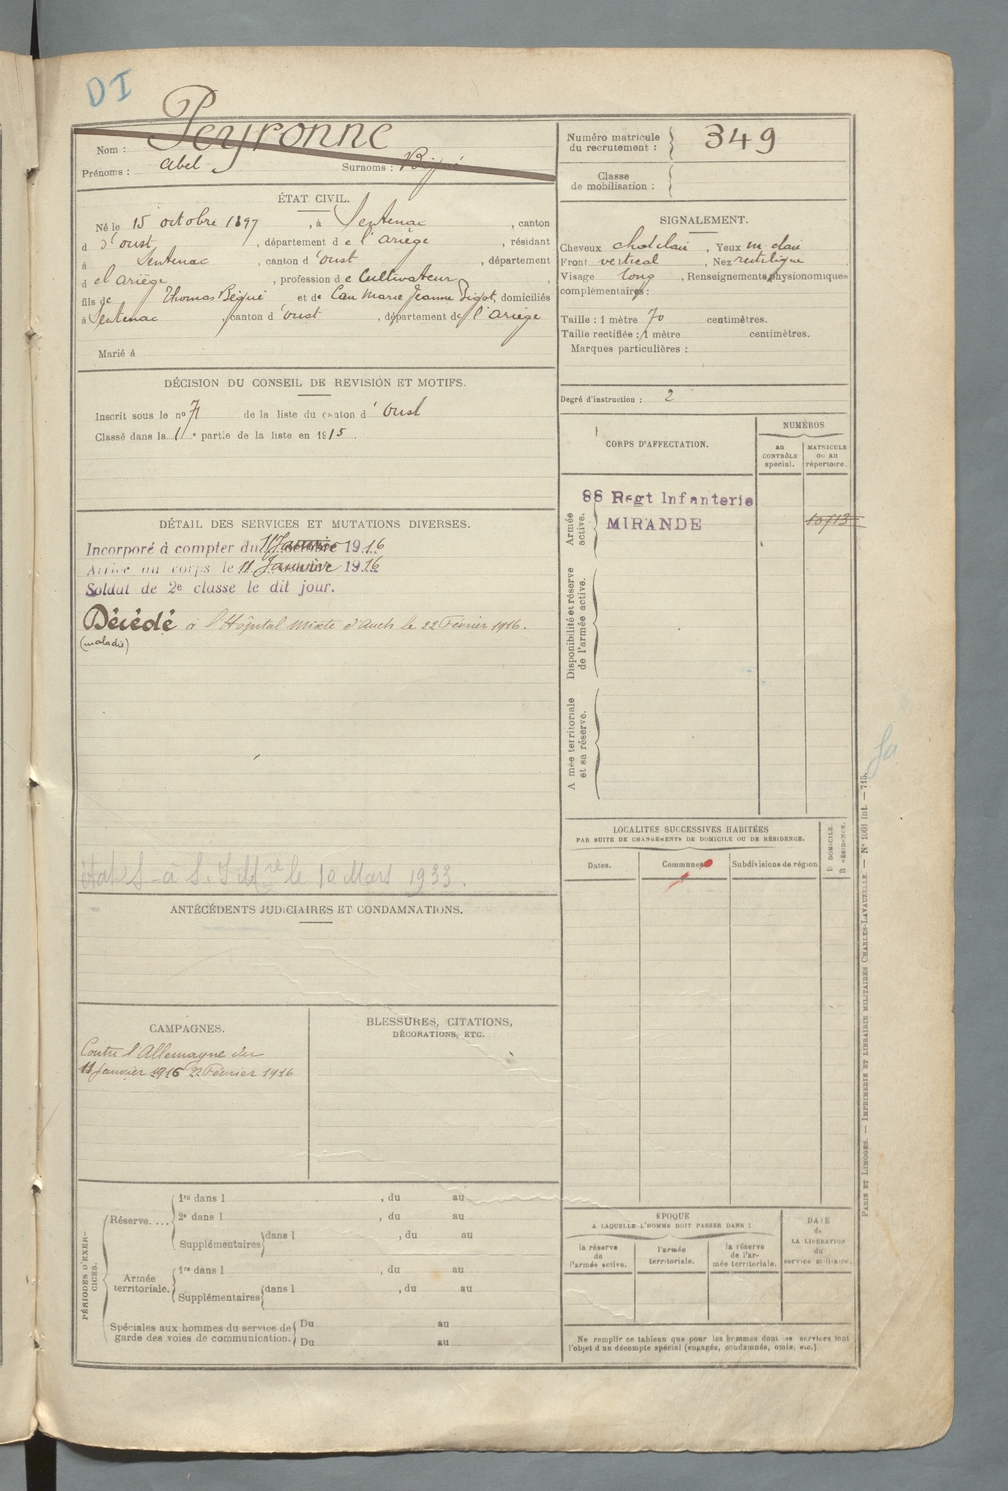 DI
Peyronne
Nom :
Prénoms : Abel Surnoms :
ÉTAT CIVIL.
Né le 15 octobre 1897, à Sentenac, canton
d d'oust, département de l'ariège, résidant
à Sentenac, canton d'oust, département
d el ariège, profession de Cultivateur
fils de Thomas Bégué et de Cau Marie Jeanne, domiciliés
à Sentenac, canton d'oust, département de l'ariège
Marié à
DÉCISION DU CONSEIL DE REVISION ET MOTIFS.
Inscrit sous le no 71 de la liste du canton d'oust
Classé dans la 1re partie de la liste en 1915
DÉTAIL DES SERVICES ET MUTATIONS DIVERSES.
Incorporé à compter du 11 Janvier 1916
Arrivé au corps le 11 Janvier 1916
Soldat de 2e classe le dit jour.
Décédé à l'Hôpital Mixte d'Auch le 22 Février 1916.
(maladie)
le 10 Mars 1933.
ANTÉCÉDENTS JUDICIAIRES ET CONDAMNATIONS.
CAMPAGNES.
Contre l'Allemagne du
11 Janvier 1916 22 Février 1916
BLESSURES, CITATIONS,
DÉCORATIONS, ETC.
PÉRIODES D'EXERCICES.
Réserve....
1re dans l , du au
2e dans l , du au
Supplémentaires dans l , du au
Armée territoriale.
1re dans l , du au
Supplémentaires dans l , du au
Spéciales aux hommes du service de garde des voies de communication.
Du au
Du au
Numéro matricule du recrutement : 349
Classe de mobilisation :
SIGNALEMENT.
Cheveux chat clair, Yeux m. clair
Front vertical, Nez rectiligne
Visage long, Renseignements physionomiques
complémentaires :
Taille : 1 mètre 70 centimètres.
Taille rectifiée : 1 mètre centimètres.
Marques particulières :
Degré d'instruction : 2
CORPS D'AFFECTATION.
NUMÉROS
au CONTRÔLE spécial.
MATRICULE ou au répertoire.
Armée active.
88 Regt Infanterie
MIRANDE
10713
Disponibilité et réserve de l'armée active.
Armée territoriale et sa réserve.
LOCALITÉS SUCCESSIVES HABITÉES
PAR SUITE DE CHANGEMENTS DE DOMICILE OU DE RÉSIDENCE.
Dates.
Communes
Subdivisions de région
D DOMICILE.
R RÉSIDENCE.
ÉPOQUE
A LAQUELLE L'HOMME DOIT PASSER DANS :
la réserve de l'armée active.
l'armée territoriale.
la réserve de l'armée territoriale.
DATE de LA LIBÉRATION du service militaire.
Ne remplir ce tableau que pour les hommes dont les services font
l'objet d'un décompte spécial (engagés, condamnés, omis, etc.)
PARIS ET LIMOGES. — IMPRIMERIE ET LIBRAIRIE MILITAIRES CHARLES-LAVAUZELLE. — N° 1001 int. — 715.